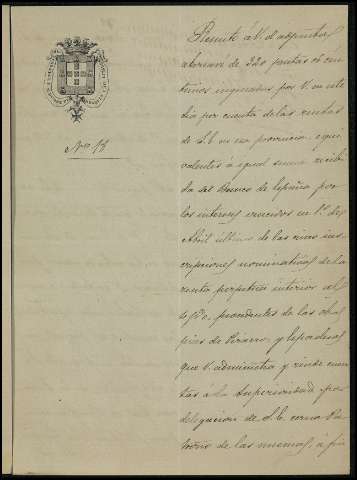 Nº 18
Remito á V. el adjunto
abonaré de 320 pesetas 06 cén
timos ingresadas por V. en este
dia por cuenta de las rentas
de S.E. en esa provincia, equi
valentes á igual suma recibi
da del Banco de España por
los intereses vencidos en 1º de
Abril último de las cinco ins
cripciones nominativas de la
renta perpétua interior al
4 p%, procedentes de las obras
pias de y
que V. administra y rinde cuen
tas á la Superioridad por
delegacion de S.E. como Pa
trono de las mismas, á fin